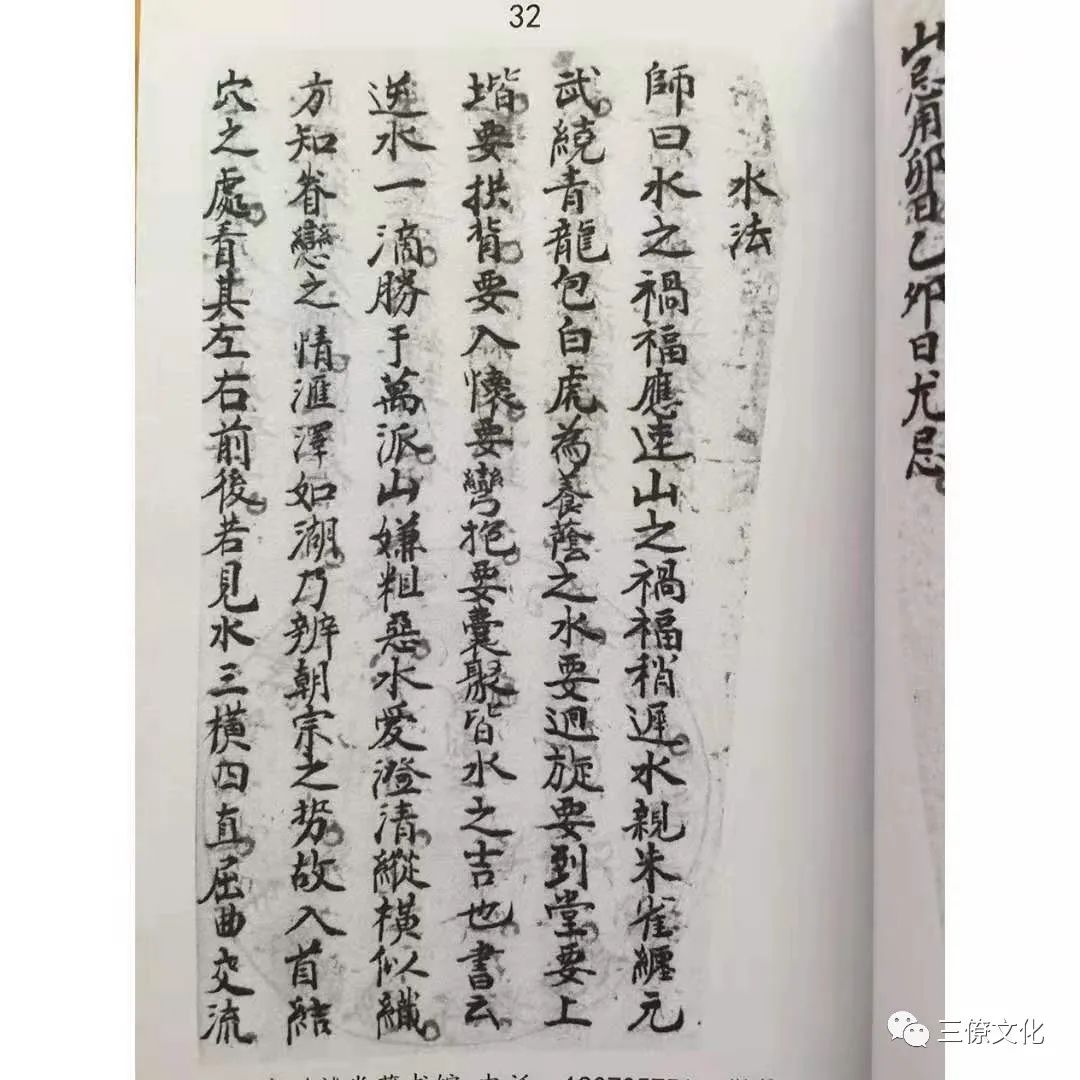 32
山忌用卯日乙卯日尤忌
水法
師曰水之禍福應速山之禍福稍遲水親朱雀纏元
武繞青龍包白虎為養蔭之水要迴旋要到堂要上
堦要拱背要入懷要彎抱要囊聚皆水之吉也書云
逆水一滴勝于萬派山嫌粗惡水愛澄清縱橫似織
方知眷戀之情滙澤如湖乃辨朝宗之势故入首結
穴之處看其左右前後若見水三橫四直屈曲交流
三僚文化